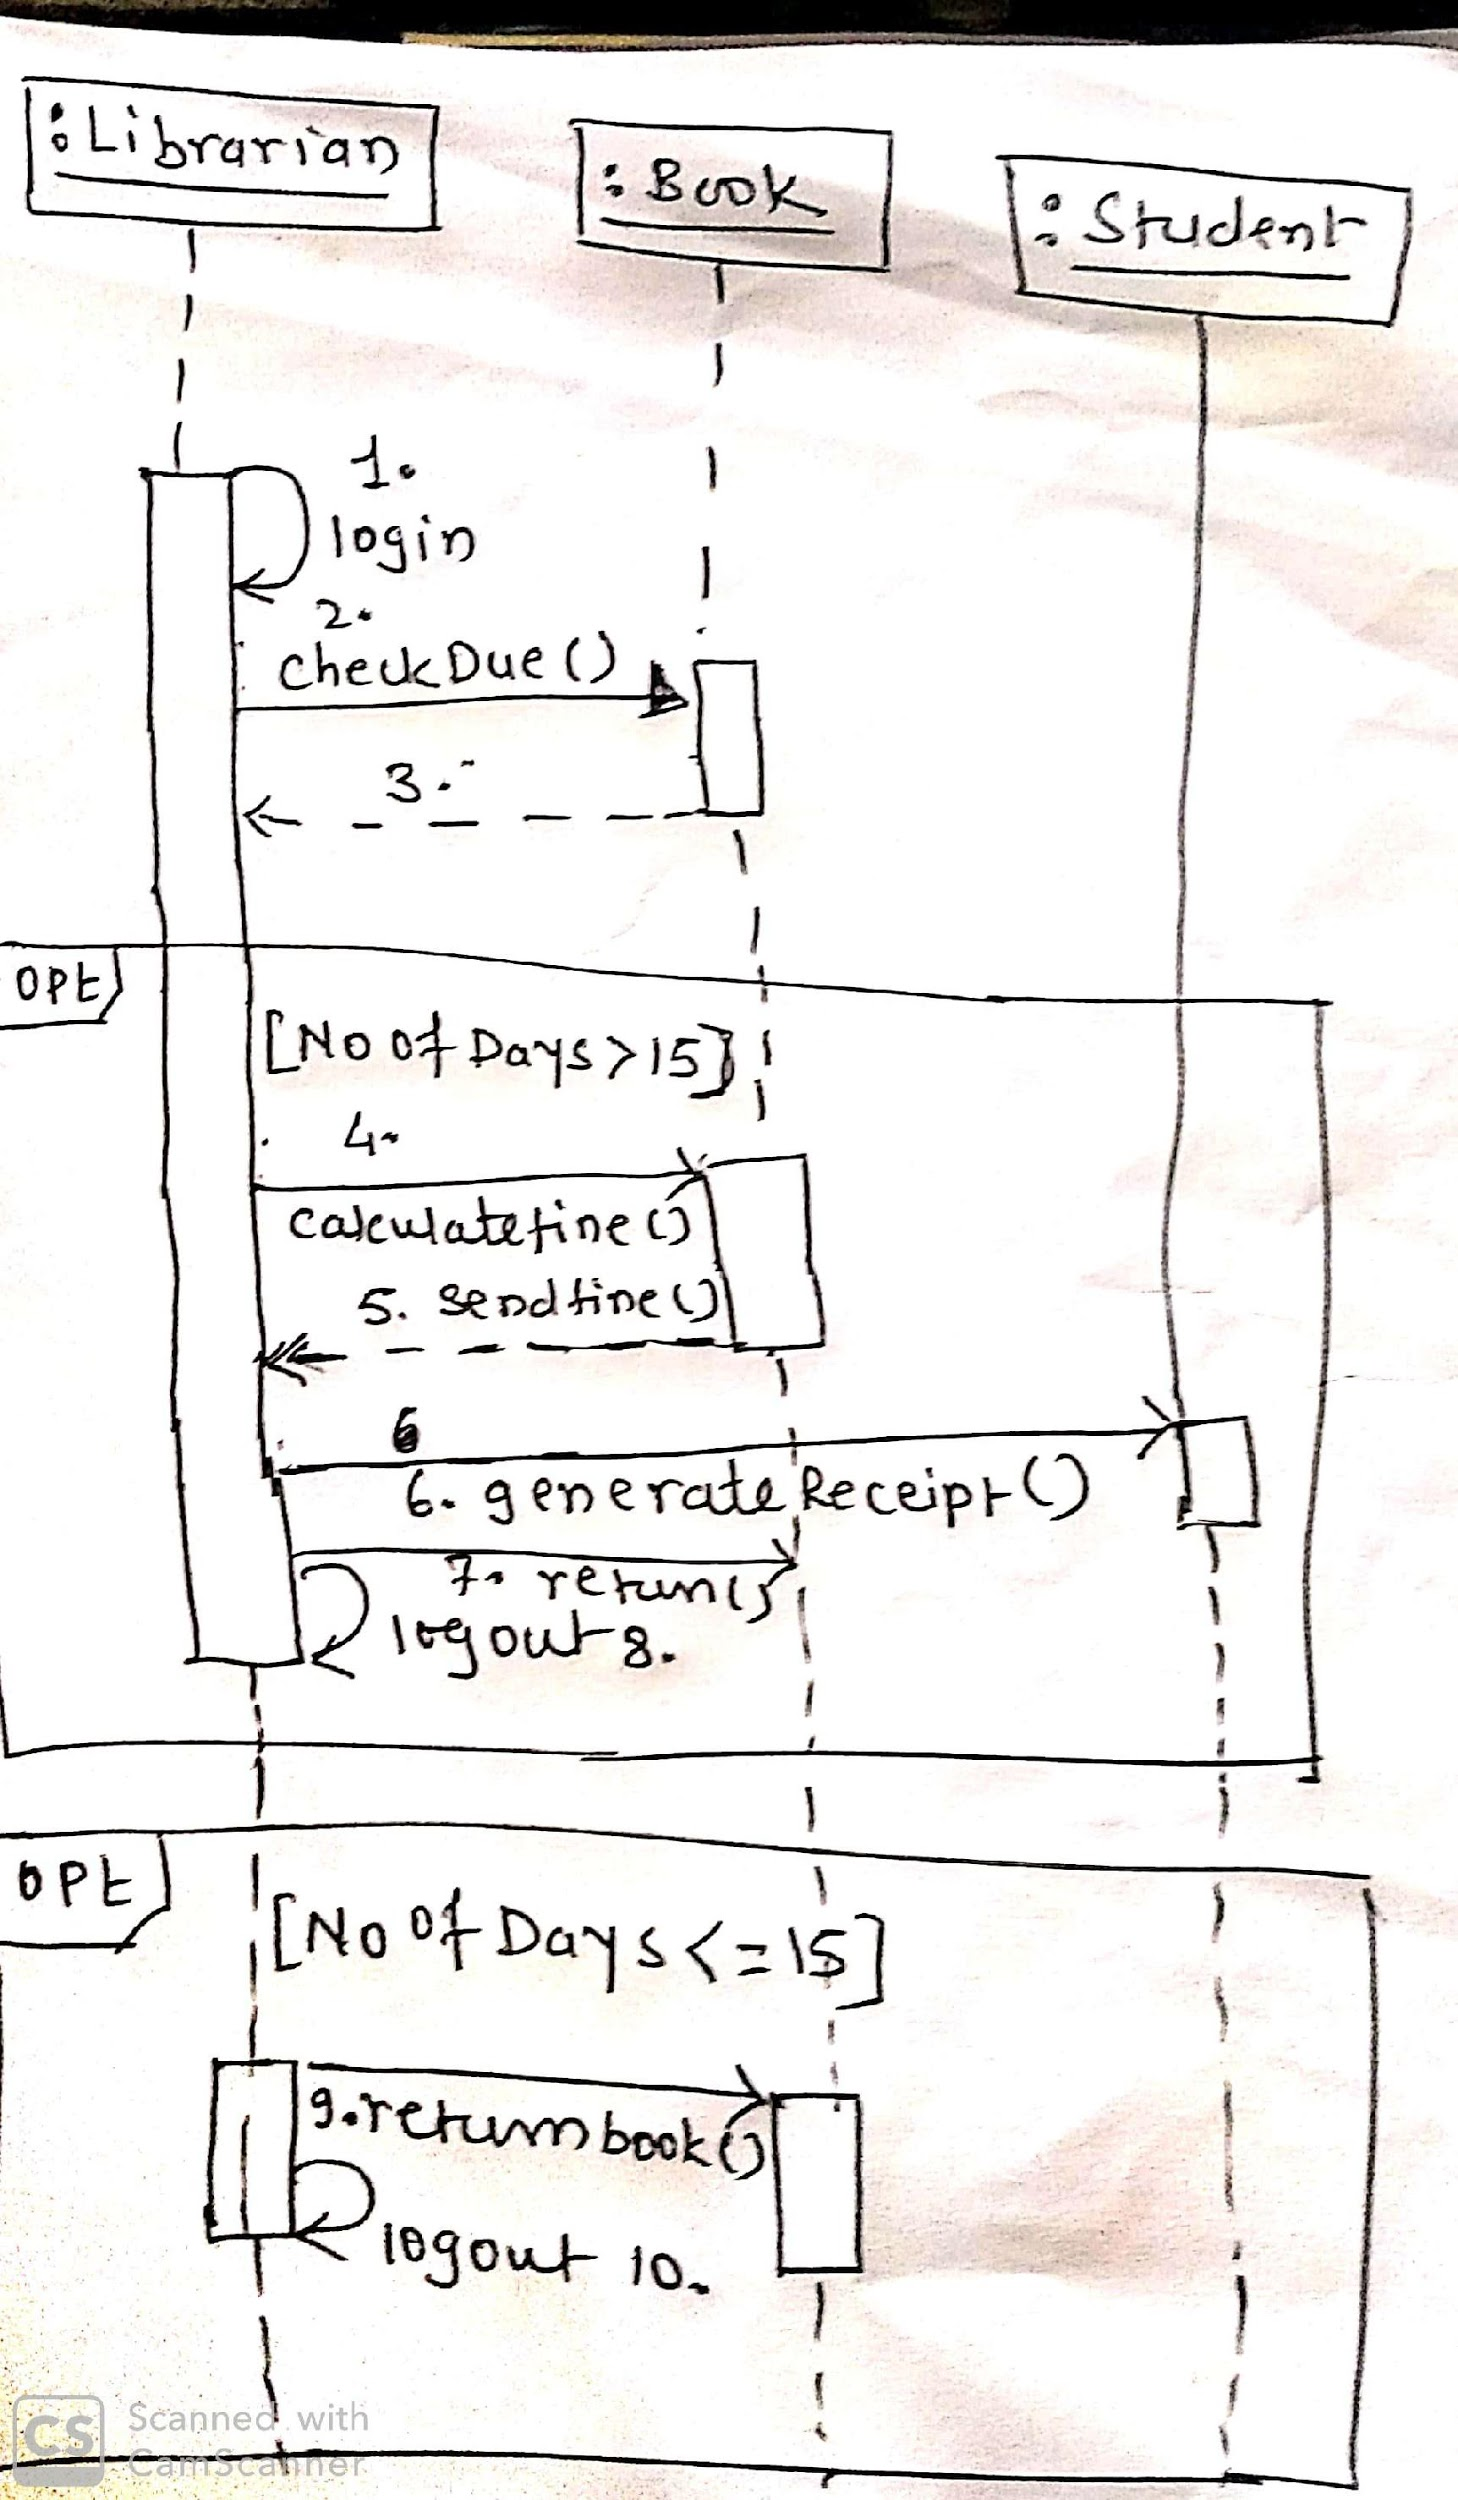 :Librarian
: Book
: Student
1.
login
2.
checkDue()
3.
OPt
[No of Days > 15]
4.
calculatefine()
5. sendfine()
6
6. generateReceipt()
7. return()
logout 8.
OPt
[No of Days <= 15]
9. return book()
logout 10.
CS
Scanned with
CamScanner